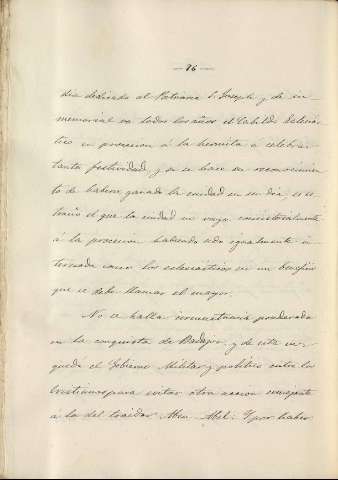 — 76 —
dia dedicado al Patriarca S. Joseph y de in-
memorial va todos los años el Cabildo Eclesiás-
tico en procesion á la hermita a celebrar
tanta festividad, y si se hace en reconocimien-
to de haberse ganado la ciudad en su dia, es es-
traño el que la ciudad no vaya consistorialmente
á la procesion habiendo sido igualmente in-
teresada como los eclesiásticos en un beneficio
que se debe llamar el mayor.
No se halla circunstancia ponderada
en la conquista de Badajoz, y de esta
quedó el Gobierno Militar y politico entre los
cristianos para evitar otra accion semejante
á la del traidor Aben Abel. Y por haber